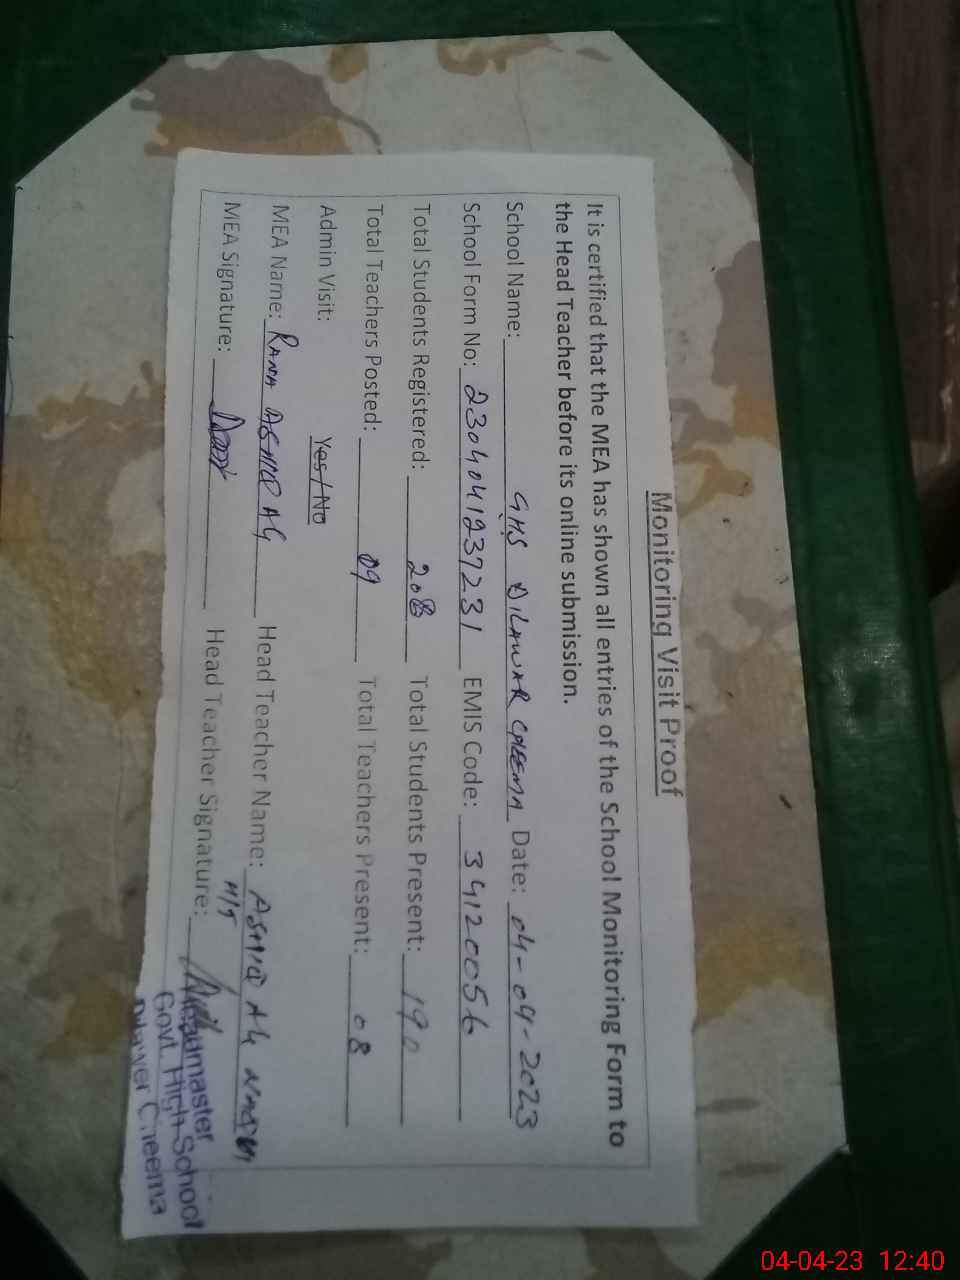 Monitoring Visit Proof
It is certified that the MEA has shown all entries of the School Monitoring Form to
the Head Teacher before its online submission.
School Name: GHS DILAWAR CHEEMA Date: 04-04-2023
School Form No: 2304041237231 EMIS Code: 34120056
Total Students Registered: 208 Total Students Present: 190
Total Teachers Posted: 09 Total Teachers Present: 08
Admin Visit: Yes/No
MEA Name: RANA ASHFAQ Head Teacher Name: ASHFAQ
MEA Signature: Head Teacher Signature:
Headmaster
Govt. High School
Dilawer Cheema
04-04-23 12:40